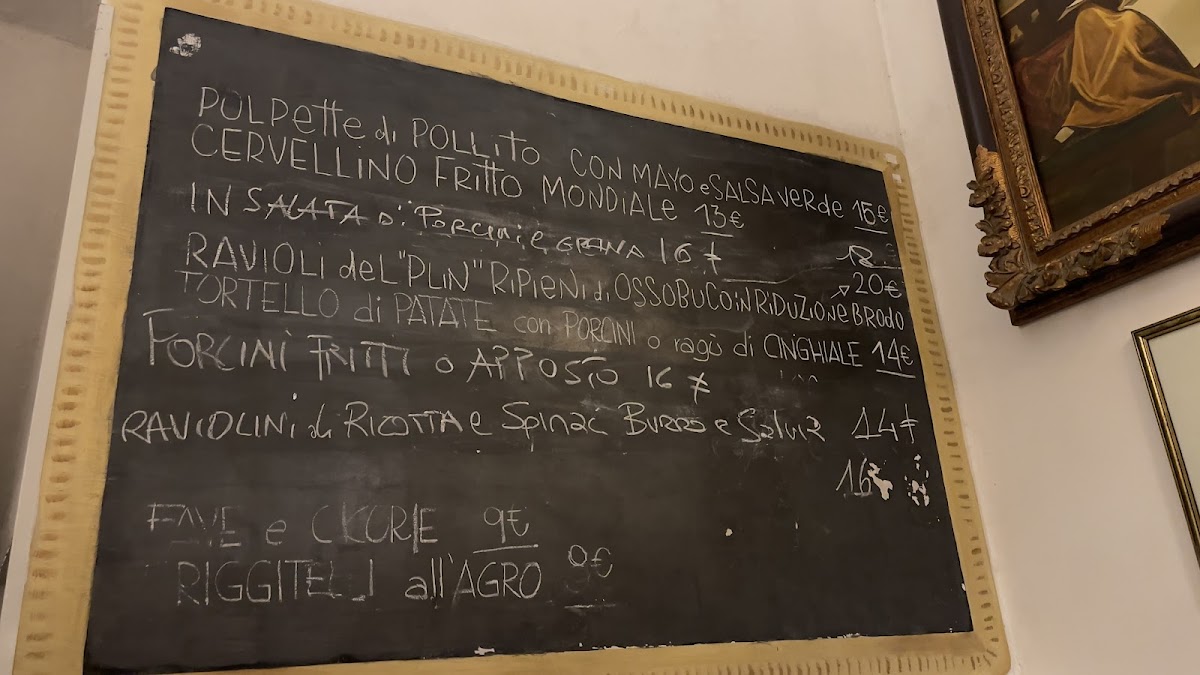 POLPette di POLLITO CON MAYO e SALSA VERde 15€
CERVELLINO FRITTO MONDIALe 13€
INSALATA Di PORCINI e GRANA 16
18
RAVIOLI deL "PLIN" RIPIENI di OSSOBUCO iN RIDUZIONe BRODO 20€
TORTELLO di PATATE con PORCINI o ragù di CINGHIALE 14€
PORCINI FRITTI o APPOSTO 16
RAVIOLINI di RICOTTA e SPINACI BURRO e SALVIA 14€
16
FAVE e CICORIE 9€
RIGGITELLI all'AGRO 9€